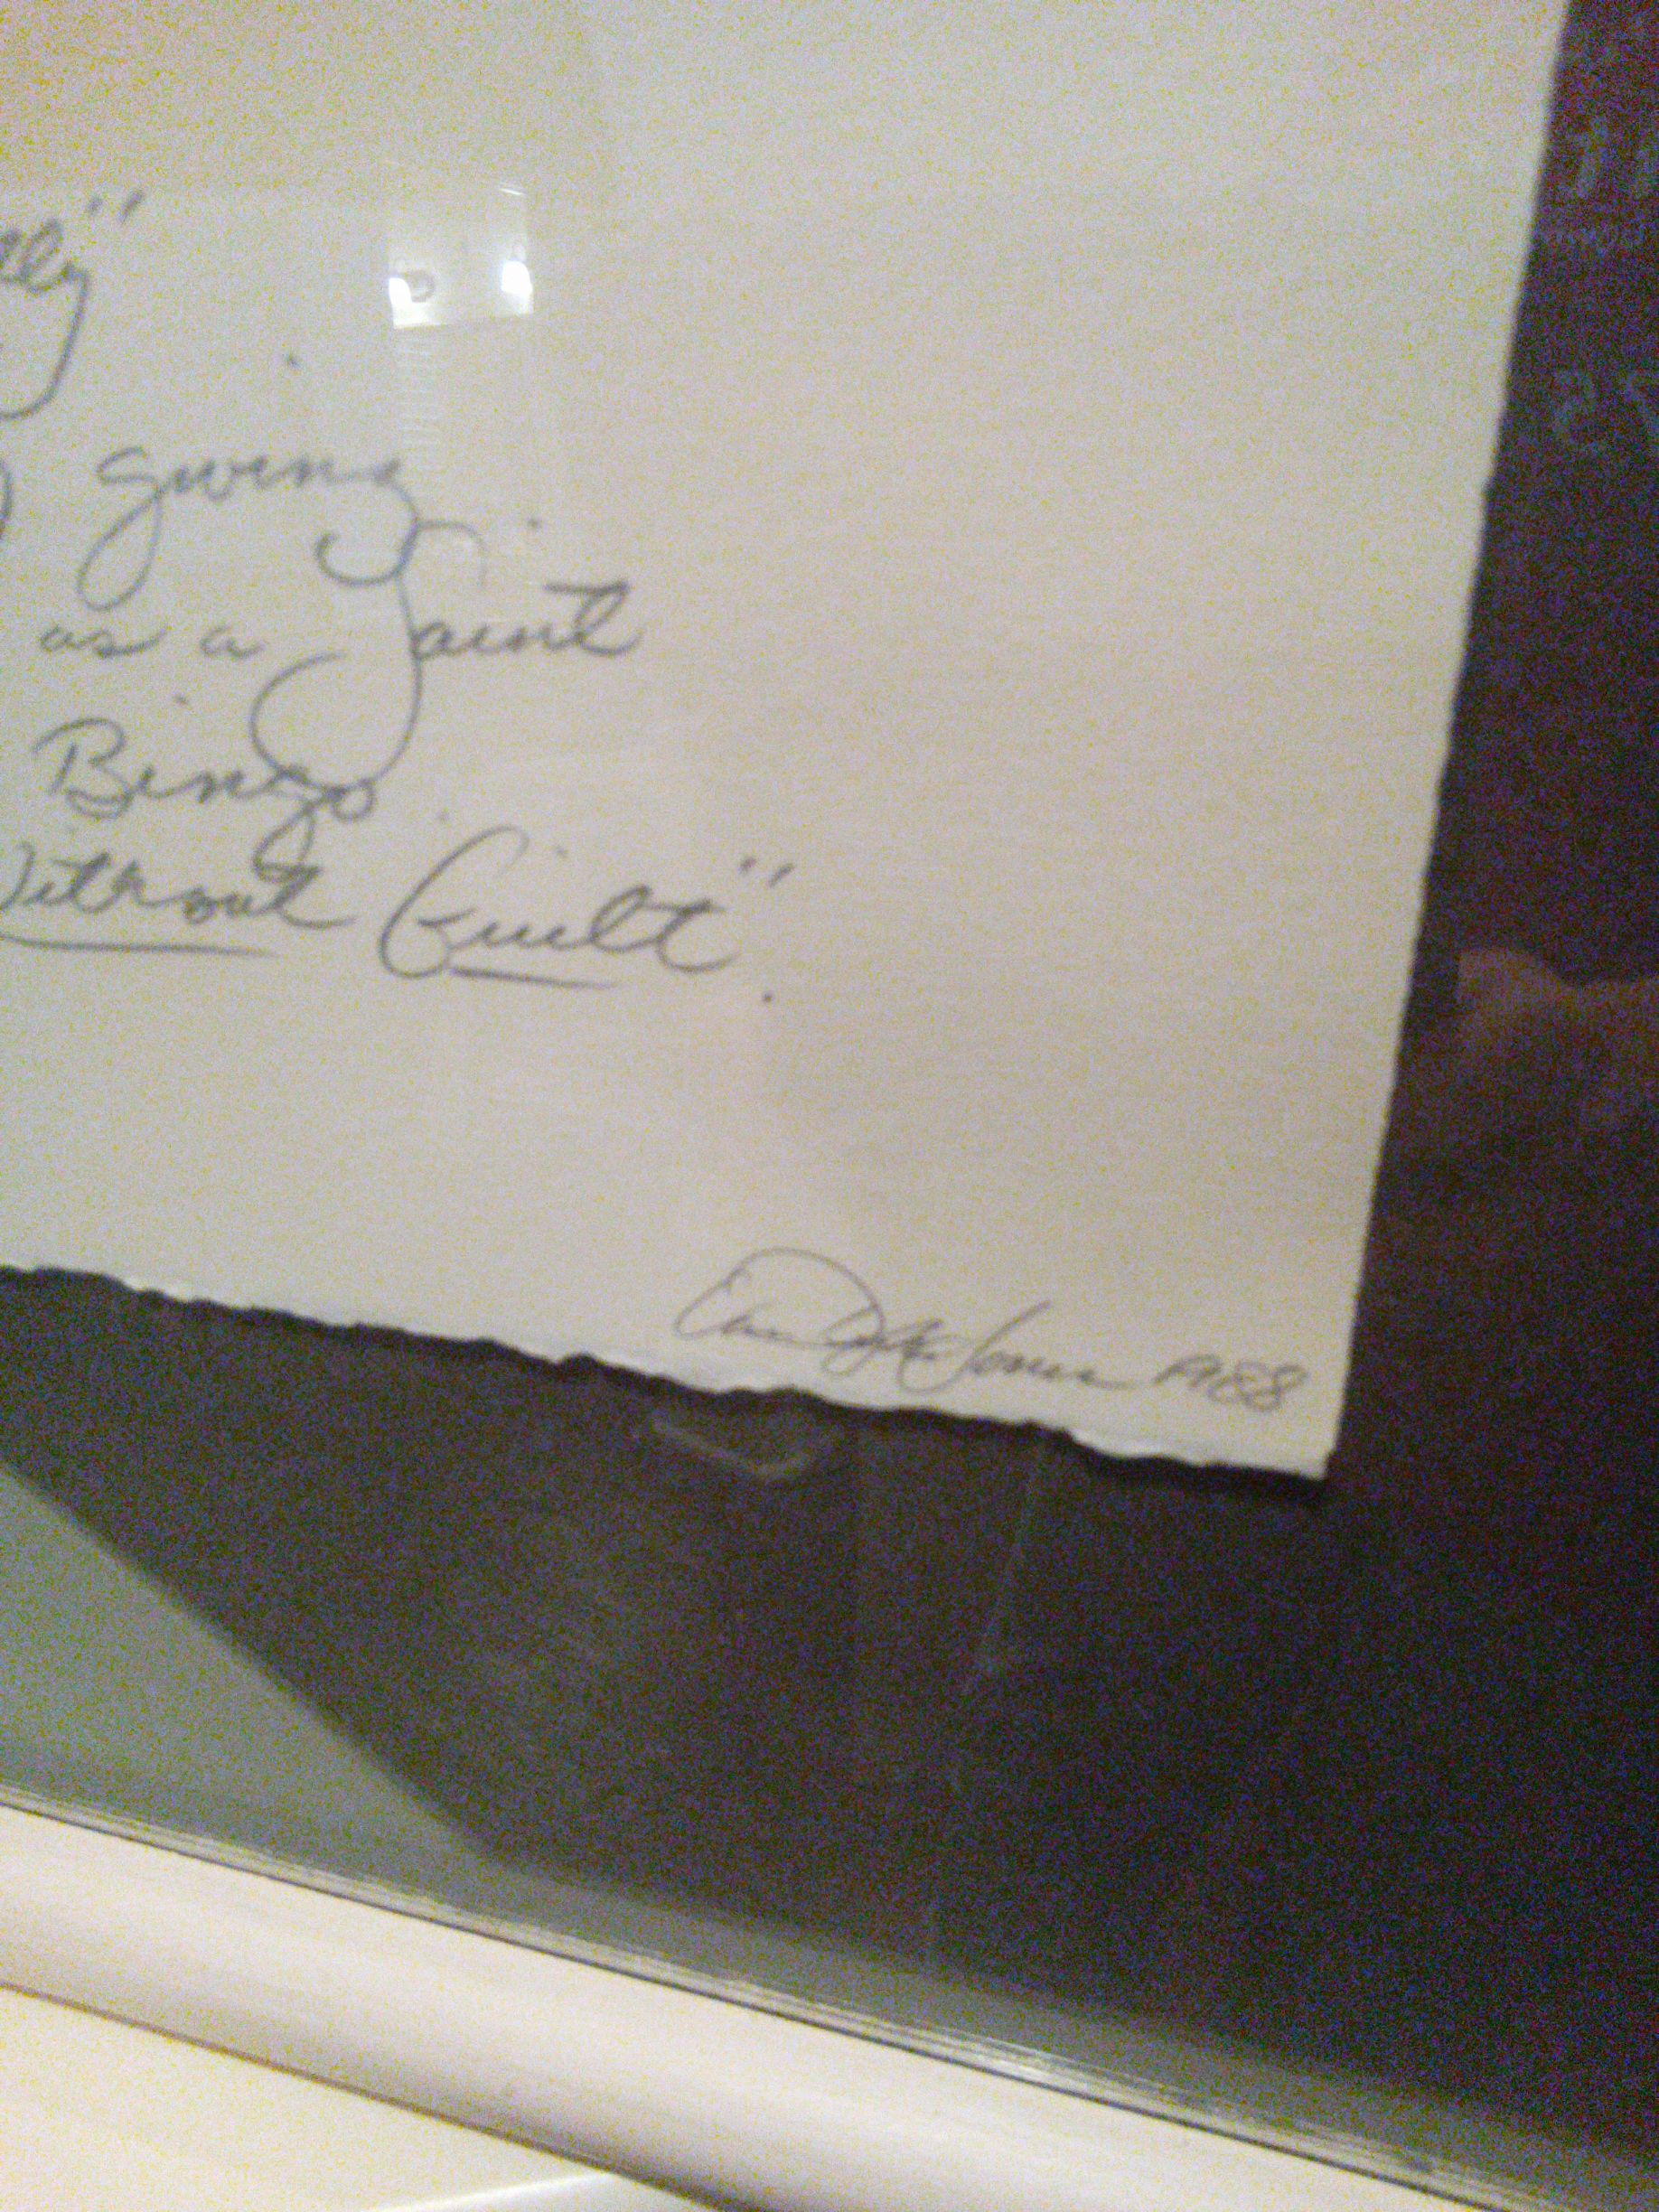 giving
as a Saint
Bingo
Without Guilt"
Jones 1988